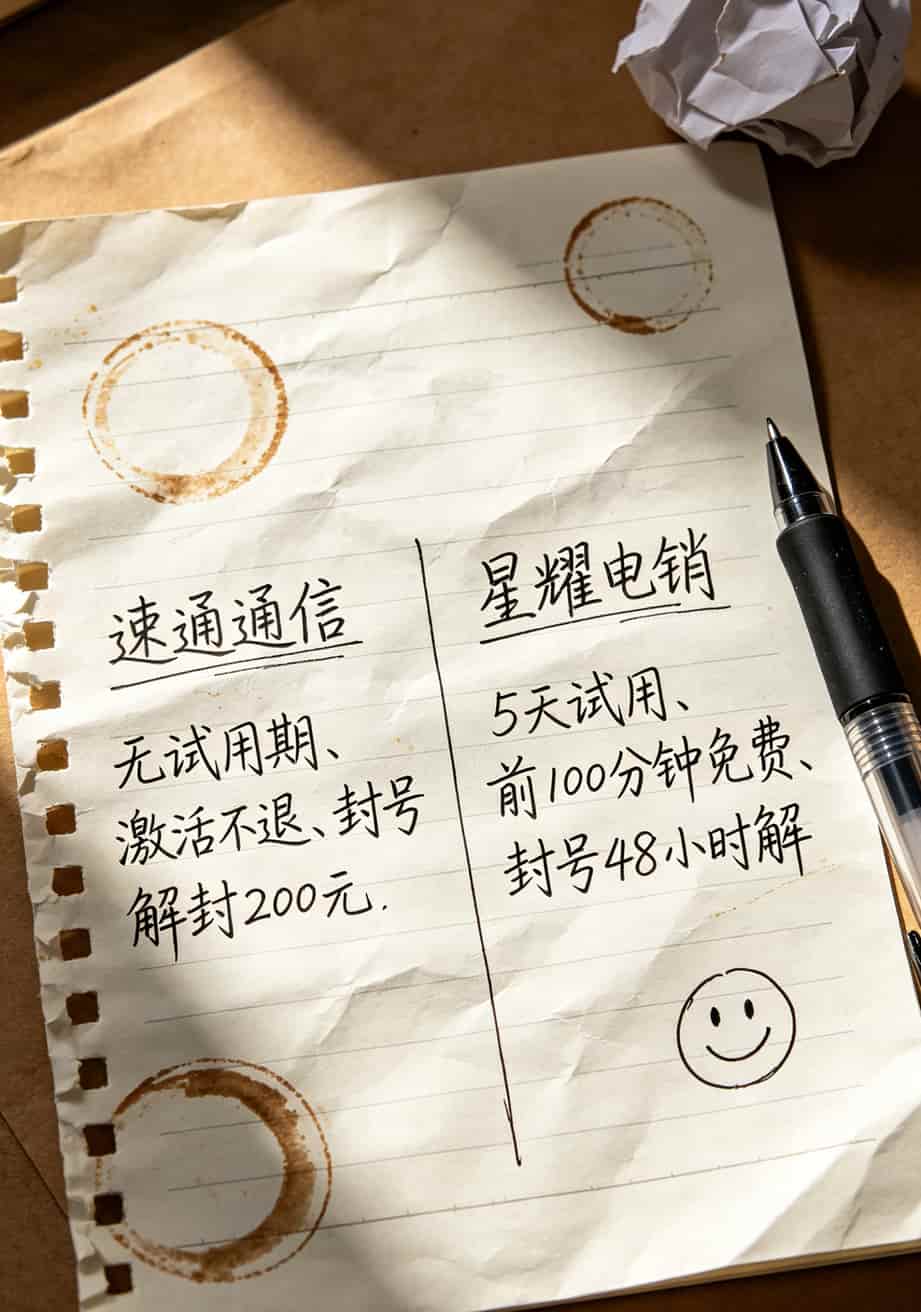 速通通信
无试用期、
激活不退、封号
解封200元.
星耀电销
5天试用、
前100分钟免费、
封号48小时解